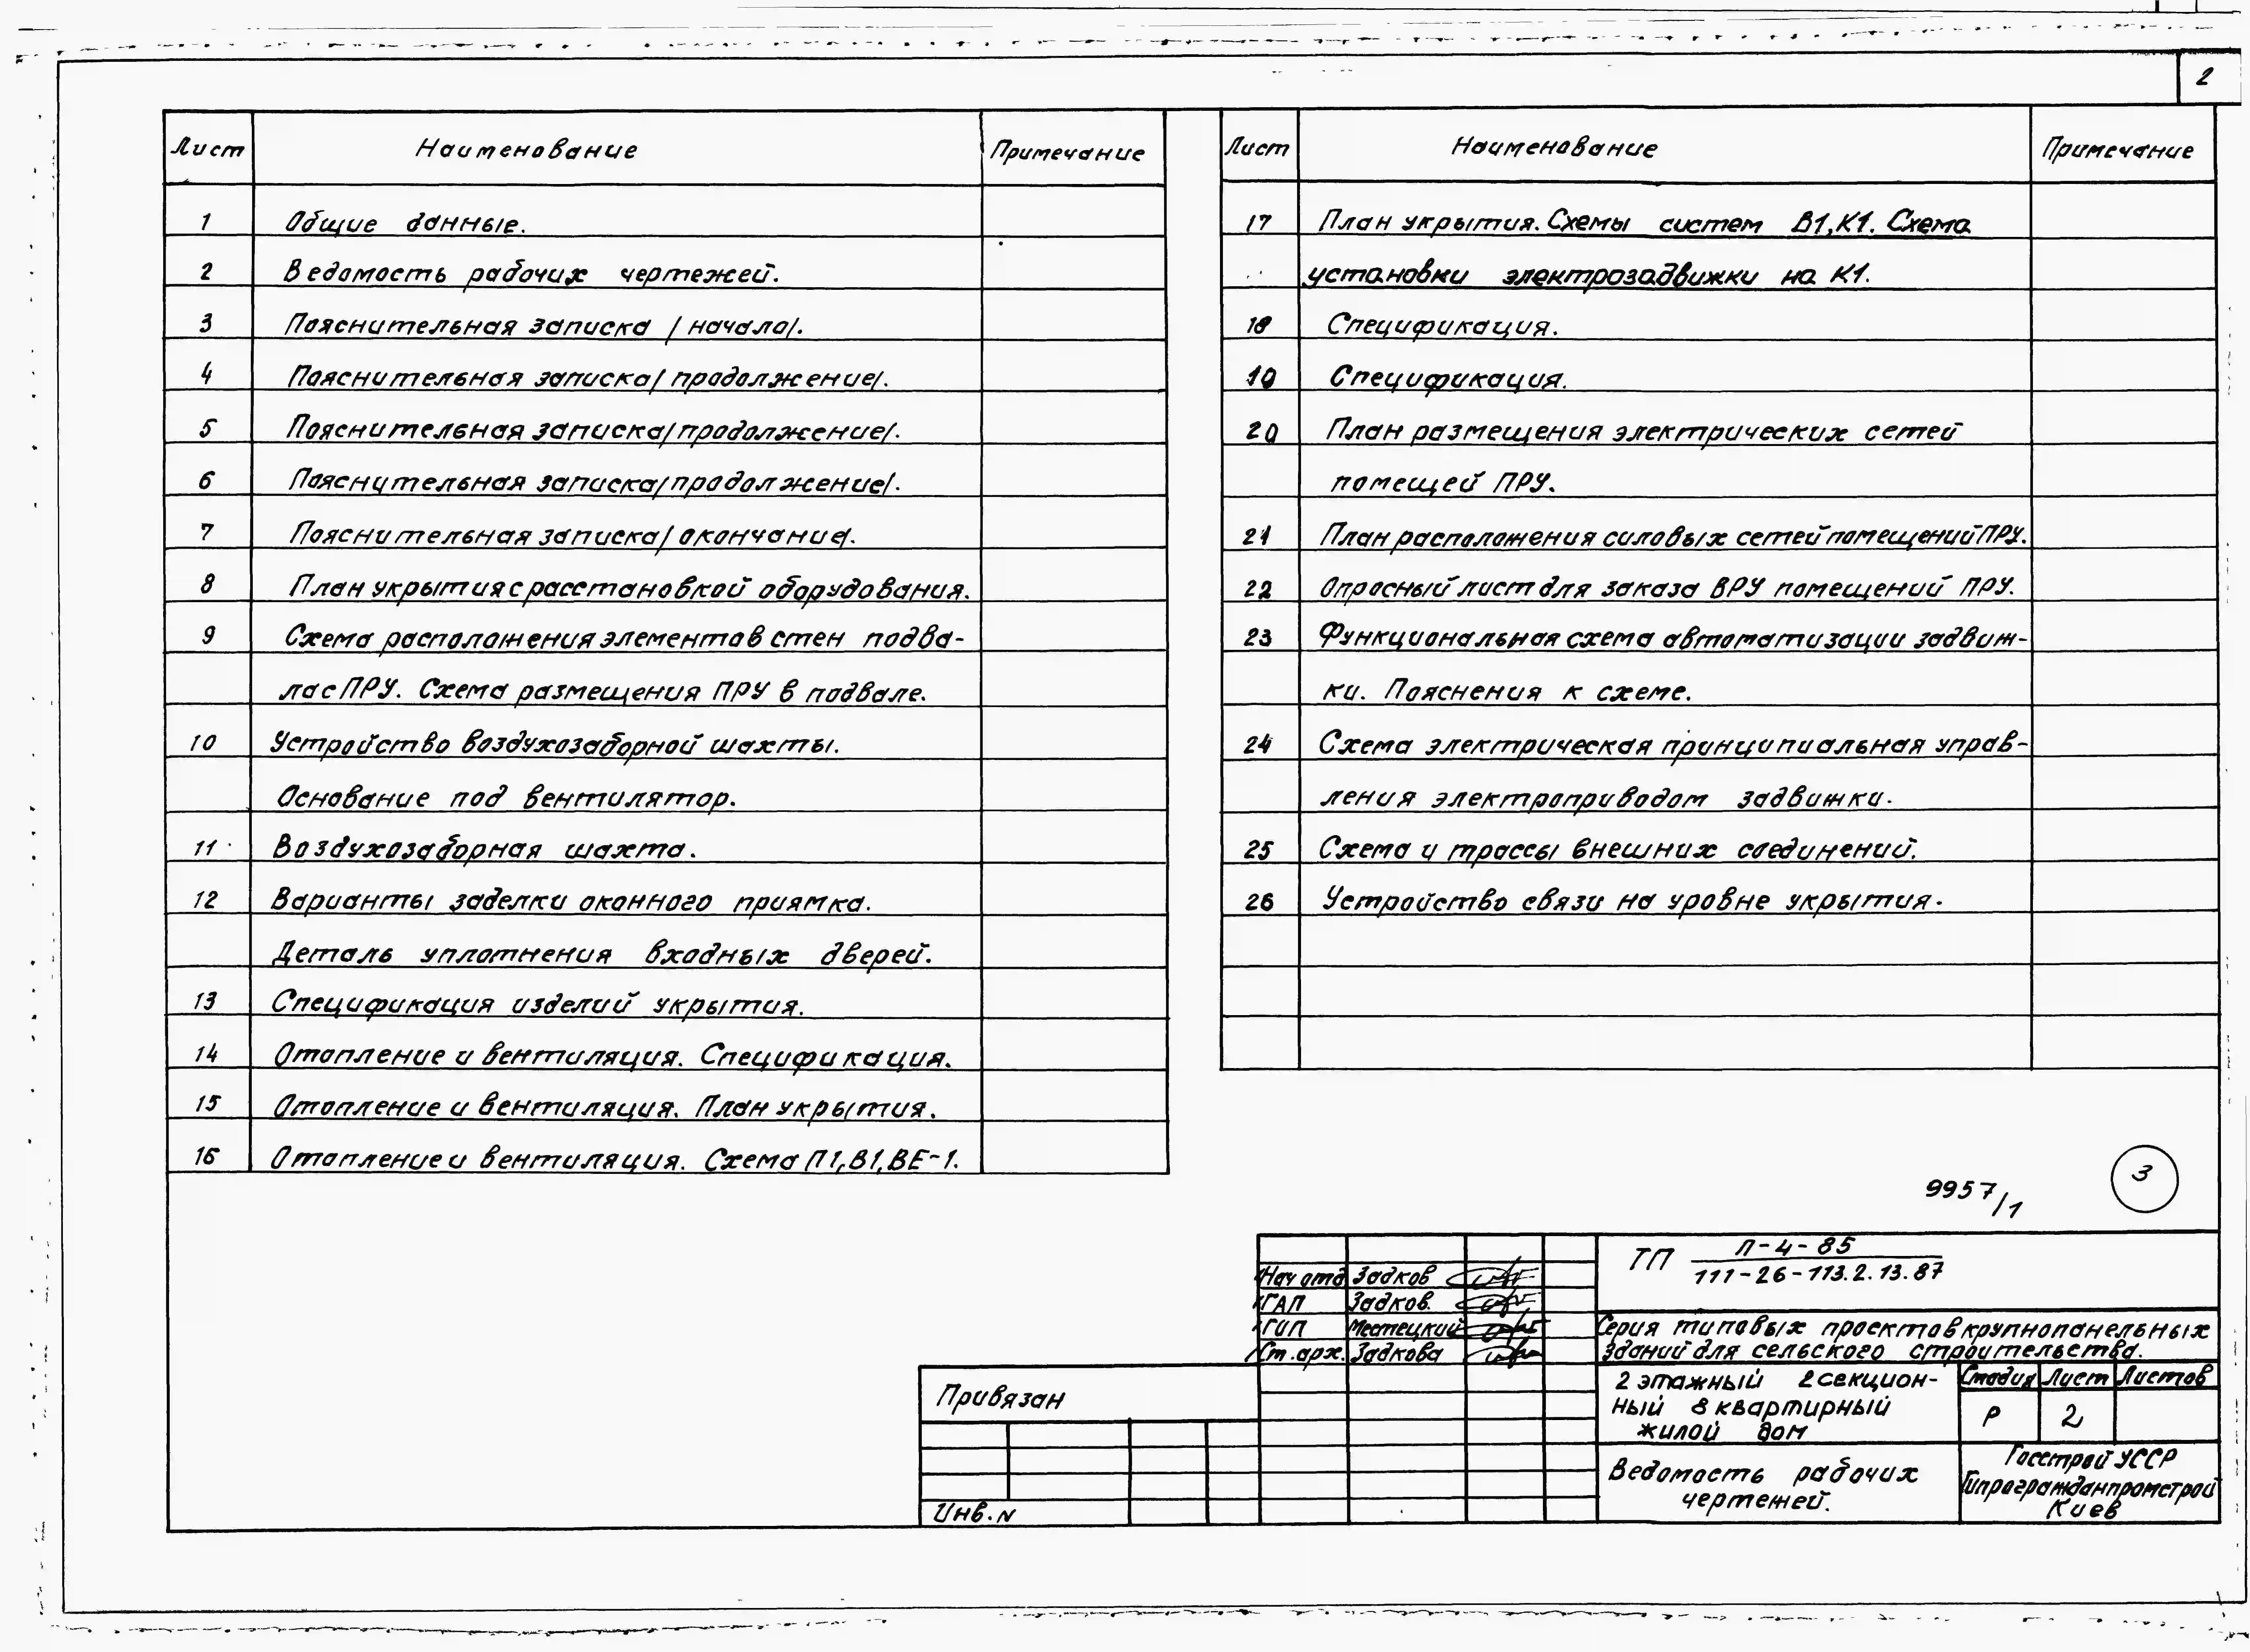 2
Лист Наименование Примечание
1 Общие данные.
2 Ведомость рабочих чертежей.
3 Пояснительная записка /начало/.
4 Пояснительная записка/продолжение/.
5 Пояснительная записка/продолжение/.
6 Пояснительная записка/продолжение/.
7 Пояснительная записка/окончание/.
8 План укрытия с расстановкой оборудования.
9 Схема расположения элементов стен подва-
ла с ПРУ. Схема размещения ПРУ в подвале.
10 Устройство воздухозаборной шахты.
Основание под вентилятор.
11 Воздухозаборная шахта.
12 Варианты заделки оконного приямка.
Деталь уплотнения входных дверей.
13 Спецификация изделий укрытия.
14 Отопление и вентиляция. Спецификация.
15 Отопление и вентиляция. План укрытия.
16 Отопление и вентиляция. Схема П1, В1, ВЕ-1.
Лист Наименование Примечание
17 План укрытия. Схемы систем В1, К1. Схема
установки электрозадвижки на К1.
18 Спецификация.
19 Спецификация.
20 План размещения электрических сетей
помещей ПРУ.
21 План расположения силовых сетей помещений ПРУ.
22 Опросный лист для заказа ВРУ помещений ПРУ.
23 Функциональная схема автоматизации задвиж-
ки. Пояснения к схеме.
24 Схема электрическая принципиальная управ-
ления электроприводом задвижки.
25 Схема и трассы внешних соединений.
26 Устройство связи на уровне укрытия.
9957/1
3
ТП Л-4-85
111-26-113.2.13.87
Нач отд Задков
ГАП Задков.
ГИП Местецкий
Ст.арх. Задкова
Серия типовых проектов крупнопанельных
зданий для сельского строительства.
2 этажный 2 секцион-
ный 8 квартирный
жилой дом
Стадия Лист Листов
Р 2
Ведомость рабочих
чертежей.
Госстрой УССР
Гипрогражданпромстрой
Киев
Привязан
Инв. N